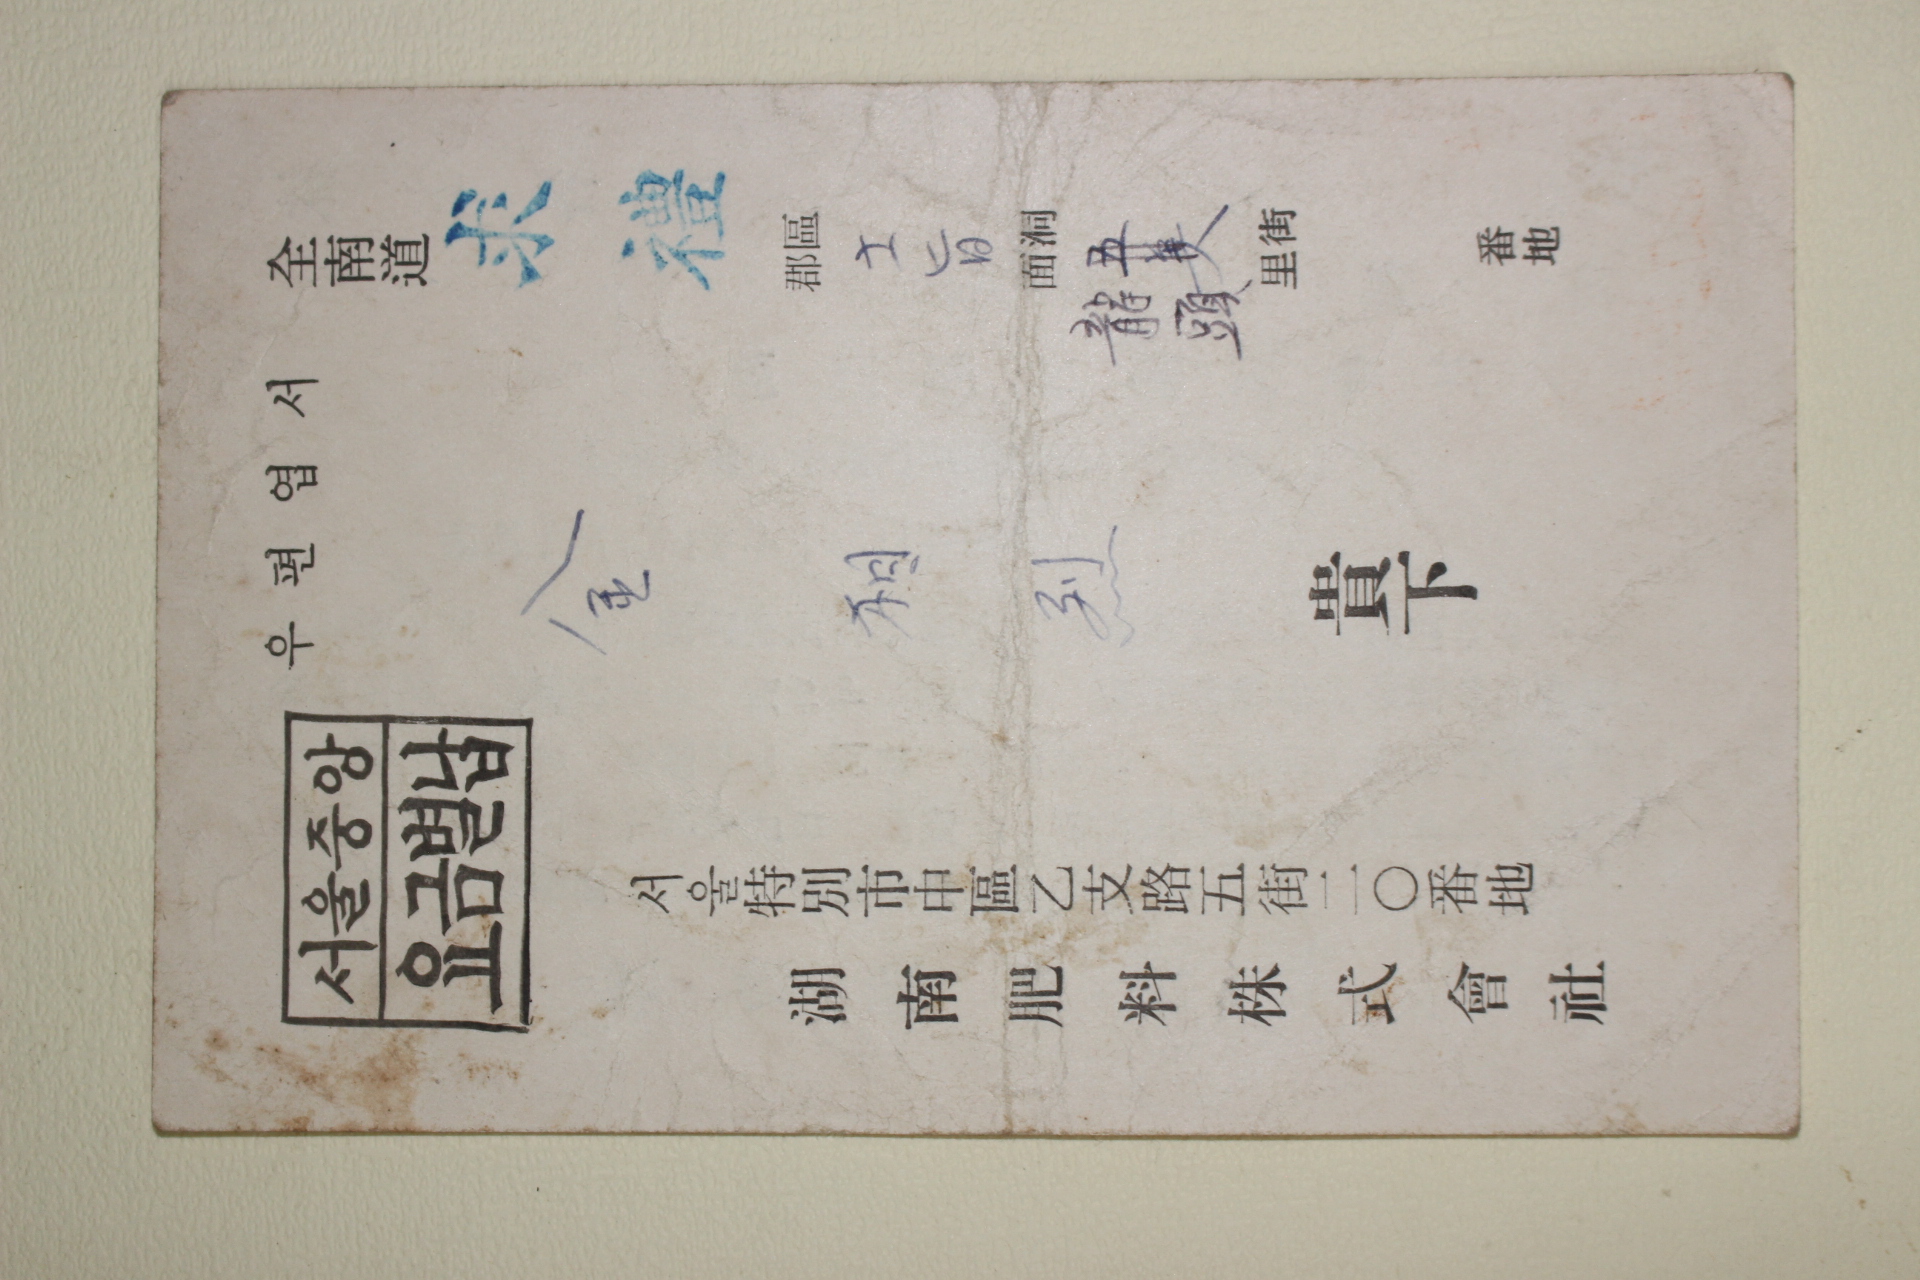 우편엽서
서울중앙
요금별납
全南道 求禮 郡區 土旨 面洞 五美 里街 番地
龍頭
金 烈 貴下
서울特別市中區乙支路五街二〇番地
湖南肥料株式會社